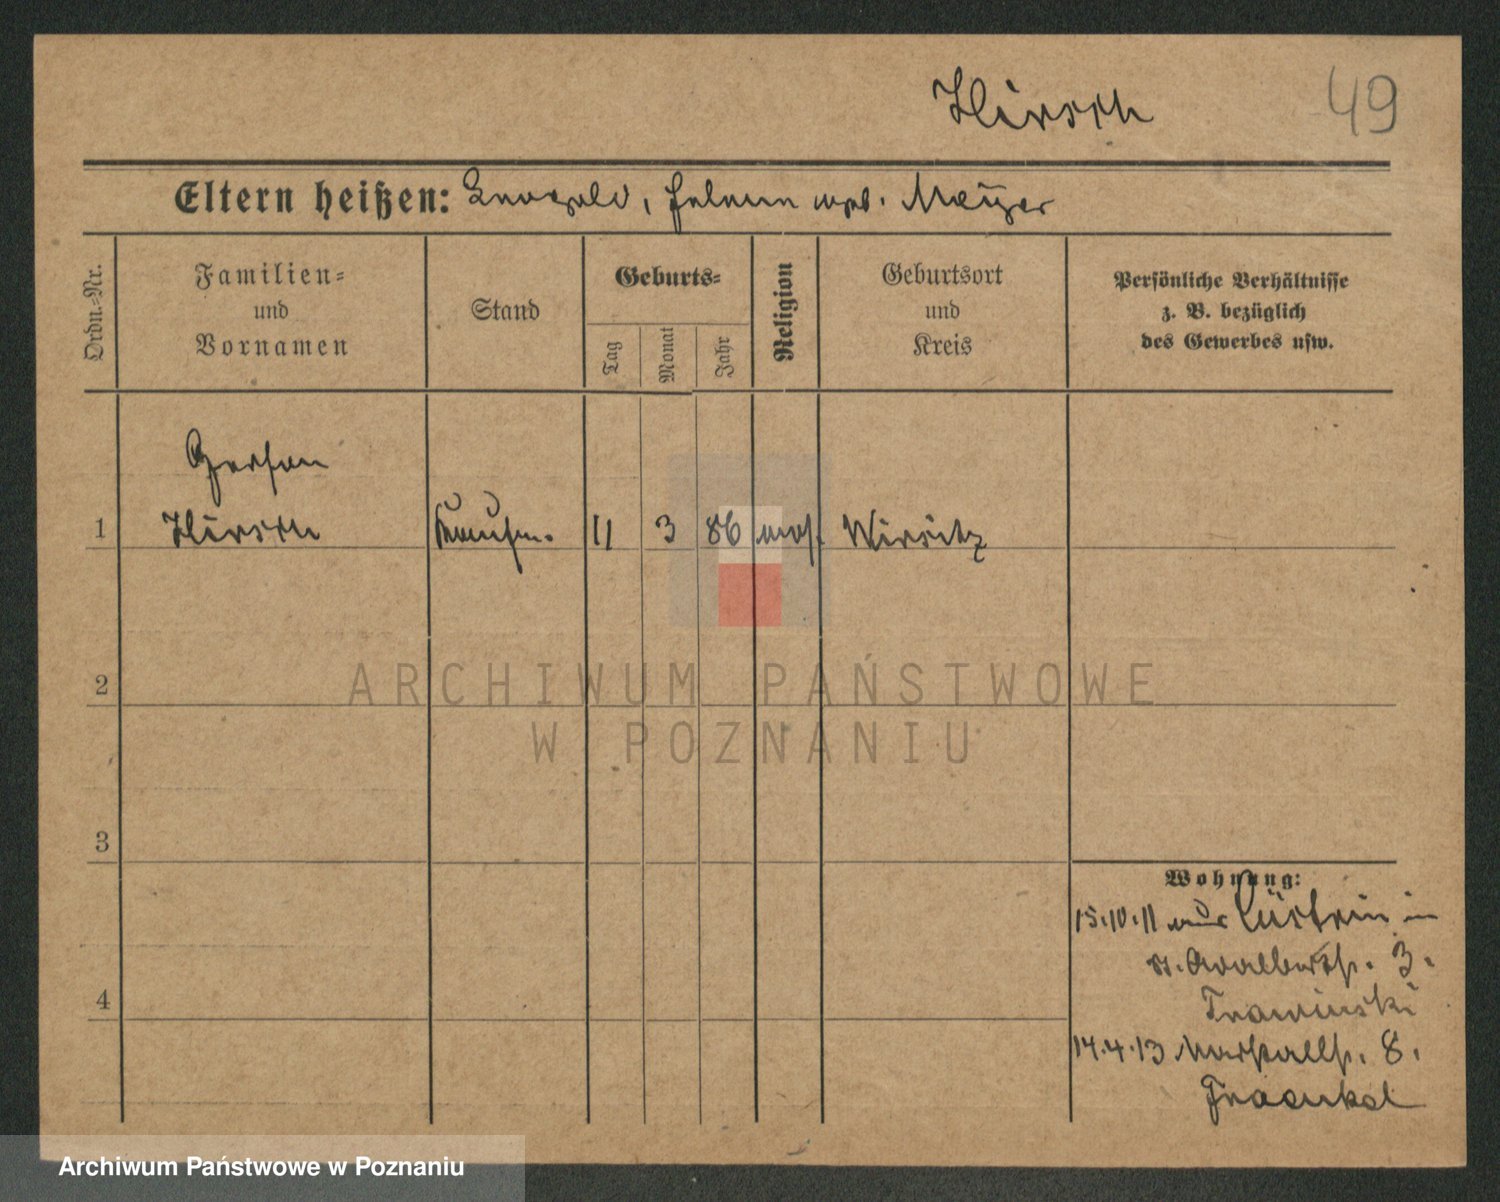 Hirsch 49
Eltern heißen: Leopold, Helene geb. Meyer
Ordn.-Nr.
Familien-
und
Vornamen
Stand
Geburts-
Tag
Monat
Jahr
Religion
Geburtsort
und
Kreis
Persönliche Verhältnisse
z. B. bezüglich
des Gewerbes usw.
Gerson
1 Hirsch Kaufm. 11 3 86 mos. Wirsitz
2
ARCHIWUM PAŃSTWOWE
W POZNANIU
3
Wohnung:
15.10.11 aus Cüstrin in
St. Adalbertstr. 3.
4
14.4.13 8.
Fraenkel
Archiwum Państwowe w Poznaniu